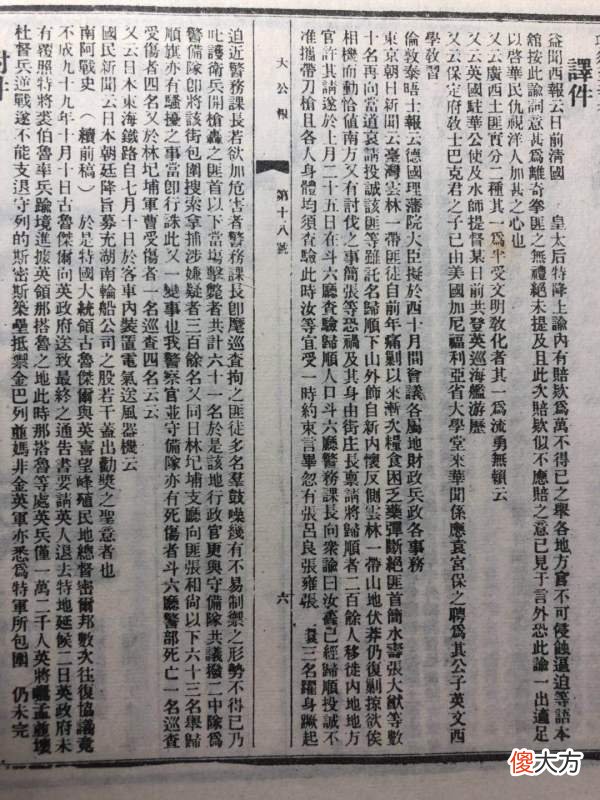 譯件
益聞西報云日前清國　皇太后特降上諭內有賠欵爲萬不得已之舉各地方官不可侵蝕逼迫等語本
舘按此諭詞意甚爲離奇拳匪之無禮絕未提及且此次賠欵似不應賠之意已見于言外恐此諭一出適足
以啓華民仇視洋人加甚之心也
又云廣西土匪實分二種其一爲半受文明敎化者其一爲流勇無賴云
又云英國駐華公使及水師提督某日前共登英巡海艦游歷
又云保定府敎士巴克君之子已由美國加尼福利亞省大學堂來華聞係應袁宮保之聘爲其公子英文西
學敎習
倫敦泰晤士報云德國理藩院大臣擬於西十月間會議各屬地財政兵政各事務
東京朝日新聞云臺灣雲林一帶匪徒自前年痛剿以來漸次糧食困乏藥彈斷絕匪首簡水壽張大猷等數
十名再向當道哀請投誠該匪等雖託名歸順下山外飾自新內懷反側雲林一帶山地伏莽仍復剿掠欲俟
相機而動恰値南方又有討伐之事簡張等恐禍及其身由街庄長稟請將歸順者二百餘人移徙內地地方
官許其請遂於上月二十五日在斗六廳查驗歸順人口斗六廳警務課長向衆諭曰汝輩已經歸順投誠不
准攜帶刀槍且各人身體均須查驗此時汝等宜受一時約束言畢忽有張呂良張雍張　三名躍身蹶起
大公報　第十八號　六
迫近警務課長若欲加危害者警務課長卽麾巡查拘之匪徒多名羣鼓噪幾有不易制禦之形勢不得已乃
叱護衛兵開槍轟之匪首以下當塲擊斃者共計六十一名於是該地行政官更與守備隊共議撥二中隊爲
警備隊卽將該街包圍搜索拿捕涉嫌疑者三百餘名又同日林圯埔支廳向匪張相尚以下六十三名舉歸
順旗亦有騷擾之事當卽行誅此又一變事也我警察官並守備隊亦有死傷者斗六廳警部死亡一名巡查
受傷者四名又於林圯埔軍曹受傷者一名巡查四名云云
又云日本東海鐵路自七月十日於客車內裝置電氣送風器機云
國民新聞云日本朝廷降旨募充湖南輪船公司之股若干蓋出勸奬之聖意者也
南阿戰史　（續前稿）　於是特國大統領古魯傑爾與英喜望峰殖民地總督密爾邦數次往復協議竟
不成九十九年十月十日古魯傑爾向英政府送致最終之通告書要請英人退去特地延候二日英政府未
有覆照特將裘伯魯率兵踰境進據英領那搭魯之地此時那搭魯等處英兵僅一萬二千人英將　孟並壞
杜督兵逆戰遂不能支退守列的斯密斯築壘抵禦金巴列並媽非金英軍亦悉爲特軍所包圍　仍未完
附件
傻大方